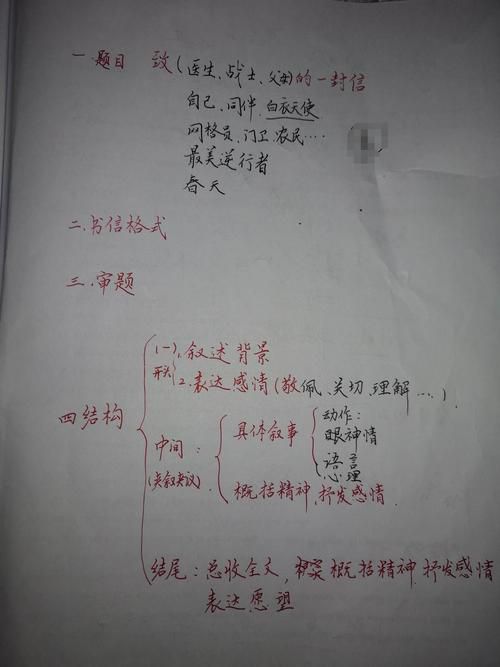 一 题目 致(医生、战士、父母)的一封信
自己、同伴、白衣天使
网格员、门卫、农民····
最美逆行者
春天
二.书信格式
三.审题
四结构
(一)1.叙述背景
开头 2.表达感情(敬佩、关切、理解....)
中间:
(夹叙夹议)
具体叙事
动作:
眼神情
语言
心理
概括精神,抒发感情
结尾:总收全文,概括精神抒发感情
表达愿望